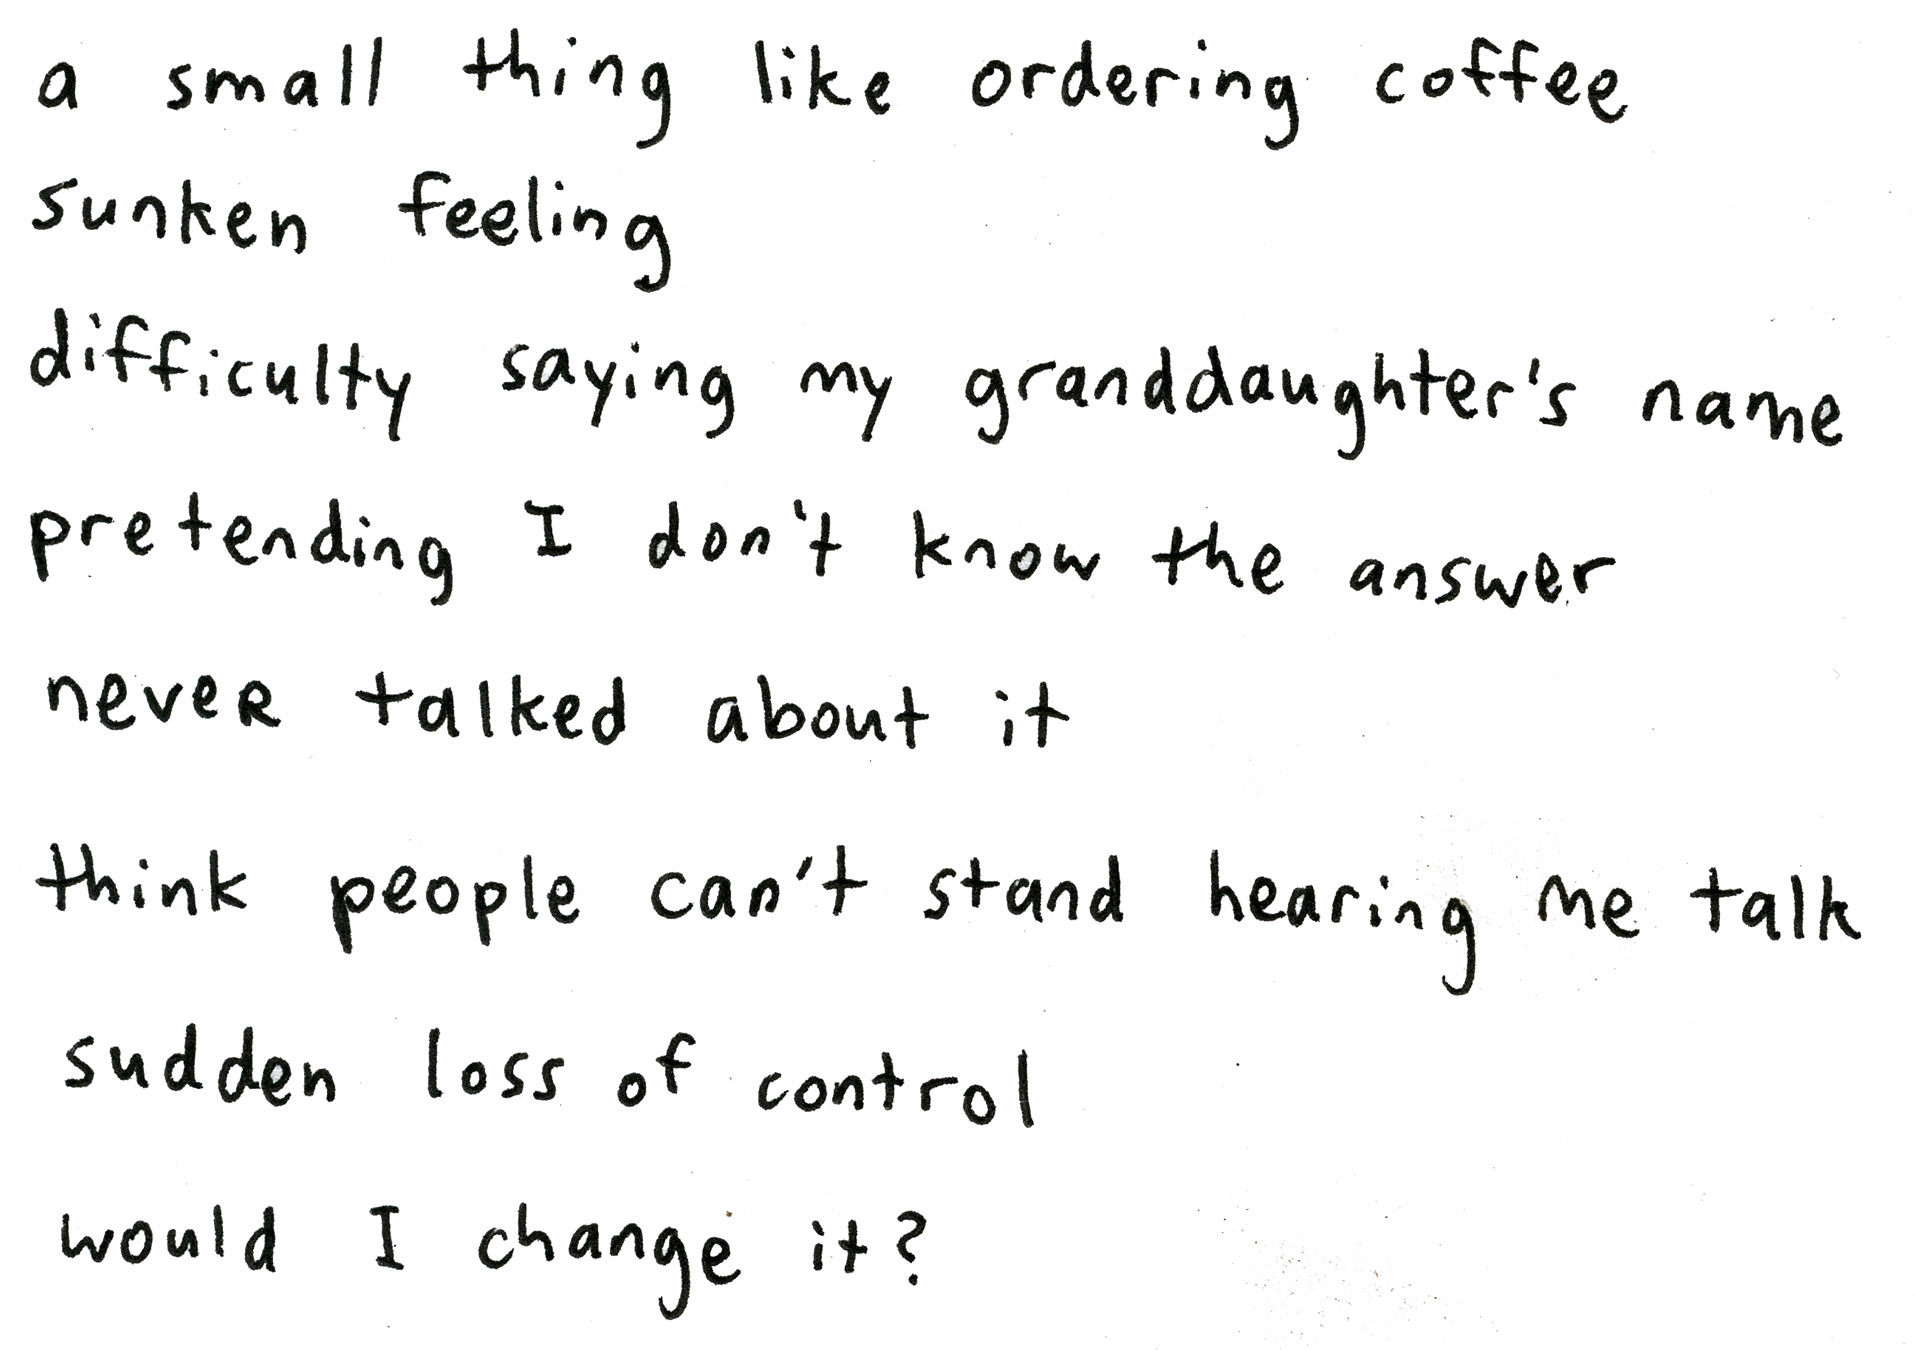 a small thing like ordering coffee
sunken feeling
difficulty saying my granddaughter's name
pretending I don't know the answer
never talked about it
think people can't stand hearing me talk
sudden loss of control
would I change it?